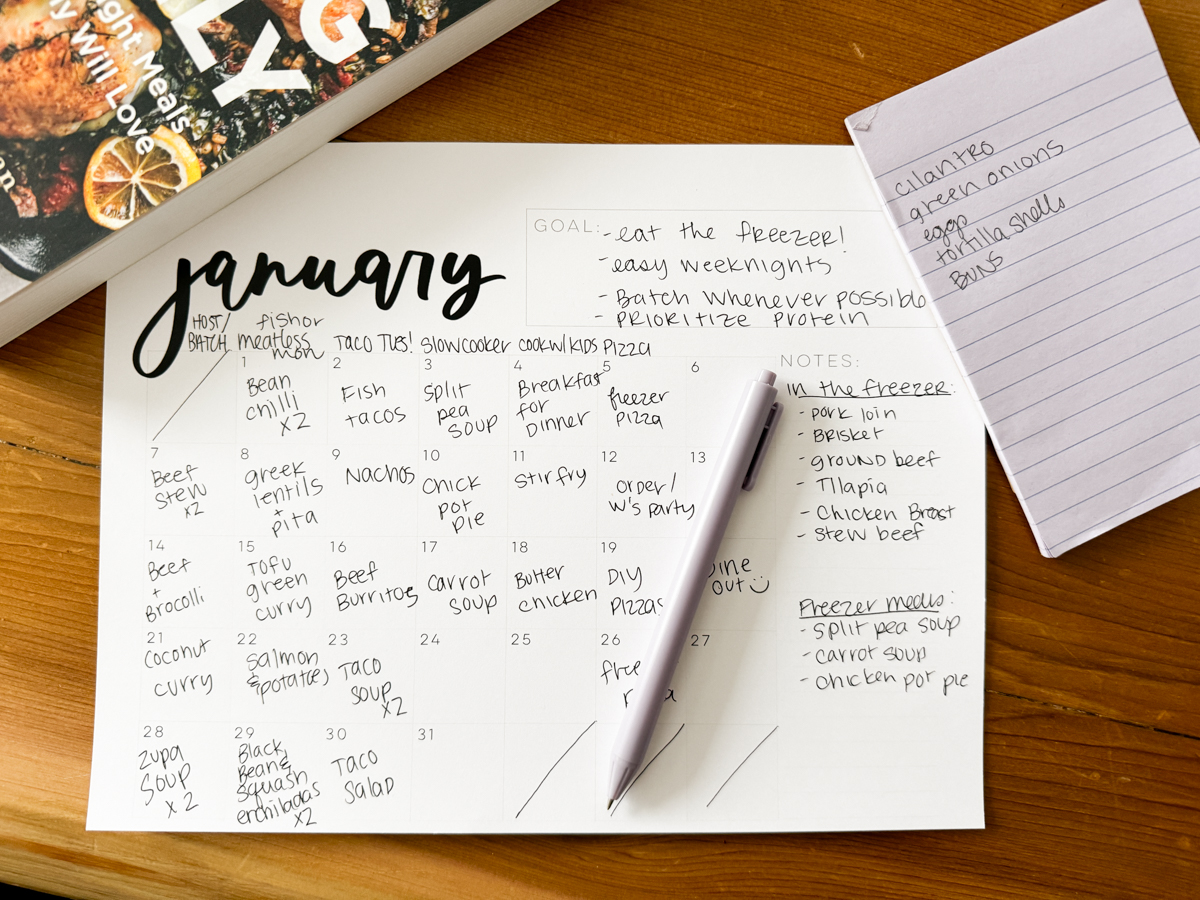 G
LY
ght Meals
y Will Love
an
january
GOAL:
-eat the freezer!
-easy weeknights
-Batch whenever possible
-prioritize protein
HOST/
BATCH
fish or
meatless
mon
TACO TUES!
slowcooker
cook w/ kids
PIZZA
1
Bean
chilli
x2
2
Fish
tacos
3
split
pea
soup
4
Breakfast
for
Dinner
5
freezer
pizza
6
7
Beef
stew
x2
8
greek
lentils
+
pita
9
Nachos
10
chick
pot
pie
11
stir fry
12
order/
W's party
13
14
Beef
+
Brocolli
15
TOFU
green
curry
16
Beef
Burritos
17
carrot
soup
18
Butter
chicken
19
DIY
pizzas
ine
out
21
coconut
curry
22
salmon
& potatoes
23
Taco
soup
x2
24
25
26
free
27
28
zupa
soup
x2
29
Black
Bean &
squash
enchiladas
x2
30
Taco
salad
31
NOTES:
in the freezer:
- pork loin
- Brisket
- ground beef
- Tilapia
- Chicken Breast
- stew beef
Freezer meals:
- split pea soup
- carrot soup
- chicken pot pie
cilantro
green onions
eggs
tortilla shells
BUNS